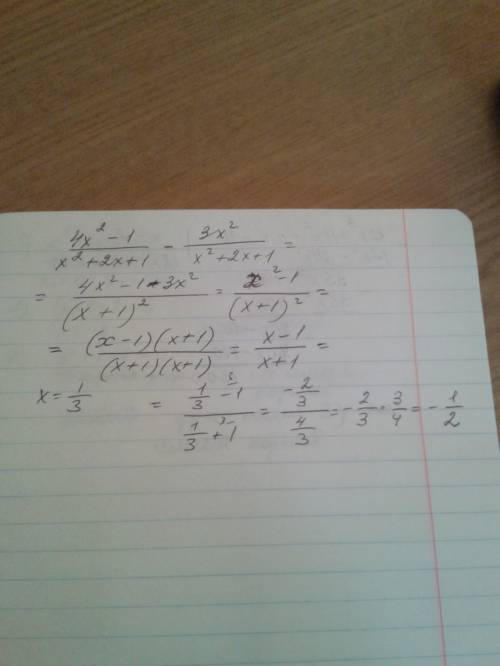 (4x² - 1)/(x² + 2x + 1) - 3x²/(x² + 2x + 1) =
= (4x² - 1 - 3x²)/(x + 1)² = (x² - 1)/(x + 1)² =
= (x - 1)(x + 1)/(x + 1)(x + 1) = (x - 1)/(x + 1) =
x = 1/3 = (1/3 - 1)/(1/3 + 1) = (-2/3)/(4/3) = -2/3 · 3/4 = -1/2